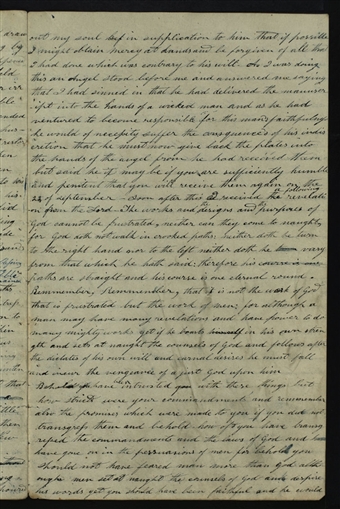 out my soul in supplication to him that if possible
I might obtain mercy at his hands and be forgiven of all that
I had done which was contrary to his will. As I was doing
this an Angel stood before me and answered me saying
that I had sinned in that he had delivered the manuscr
ipt into the hands of a wicked man and as he had
ventured to become responsible for this man's faithfulness
he would of necessity suffer the consequences of his indis
cretion that he must now give back the plates into
the hands of the angel from he had received them
but said he it may be if you are sufficiently humble
and penitent that you will receive them again on the
22 of september. Soon after this received the revelati
on from the Lord. The works and designs and the purposes of
God cannot be frustrated, neither can they come to naught
for God doth not walk in crooked paths; neither doth he turn
to the right hand nor to the left neither doth he vary
from that which he hath said: therefore his
paths are straight and his course is one eternal round.
Remember, Remember, that it is not the work of God
that is frustrated but the work of men; for although a
man may have many revelations and have power to do
many mighty works yet if he boasts in his own stren
gth and sets at naught the counsels of God and follows after
the dictates of his own will and carnal desires he must fall
and incur the vengeance of a just God upon him
Behold, you have intrusted you with these things but
how strict were your commandments and remember
also the promises which were made to you if you did not
transgress them and behold how oft you have transg
ressed the commandments and the laws of God and
have gone on in the persuasions of men for behold you
should not have feared man more than God alth
ough men set at naught the counsels of God and despise
his words yet you should have been faithful and he would